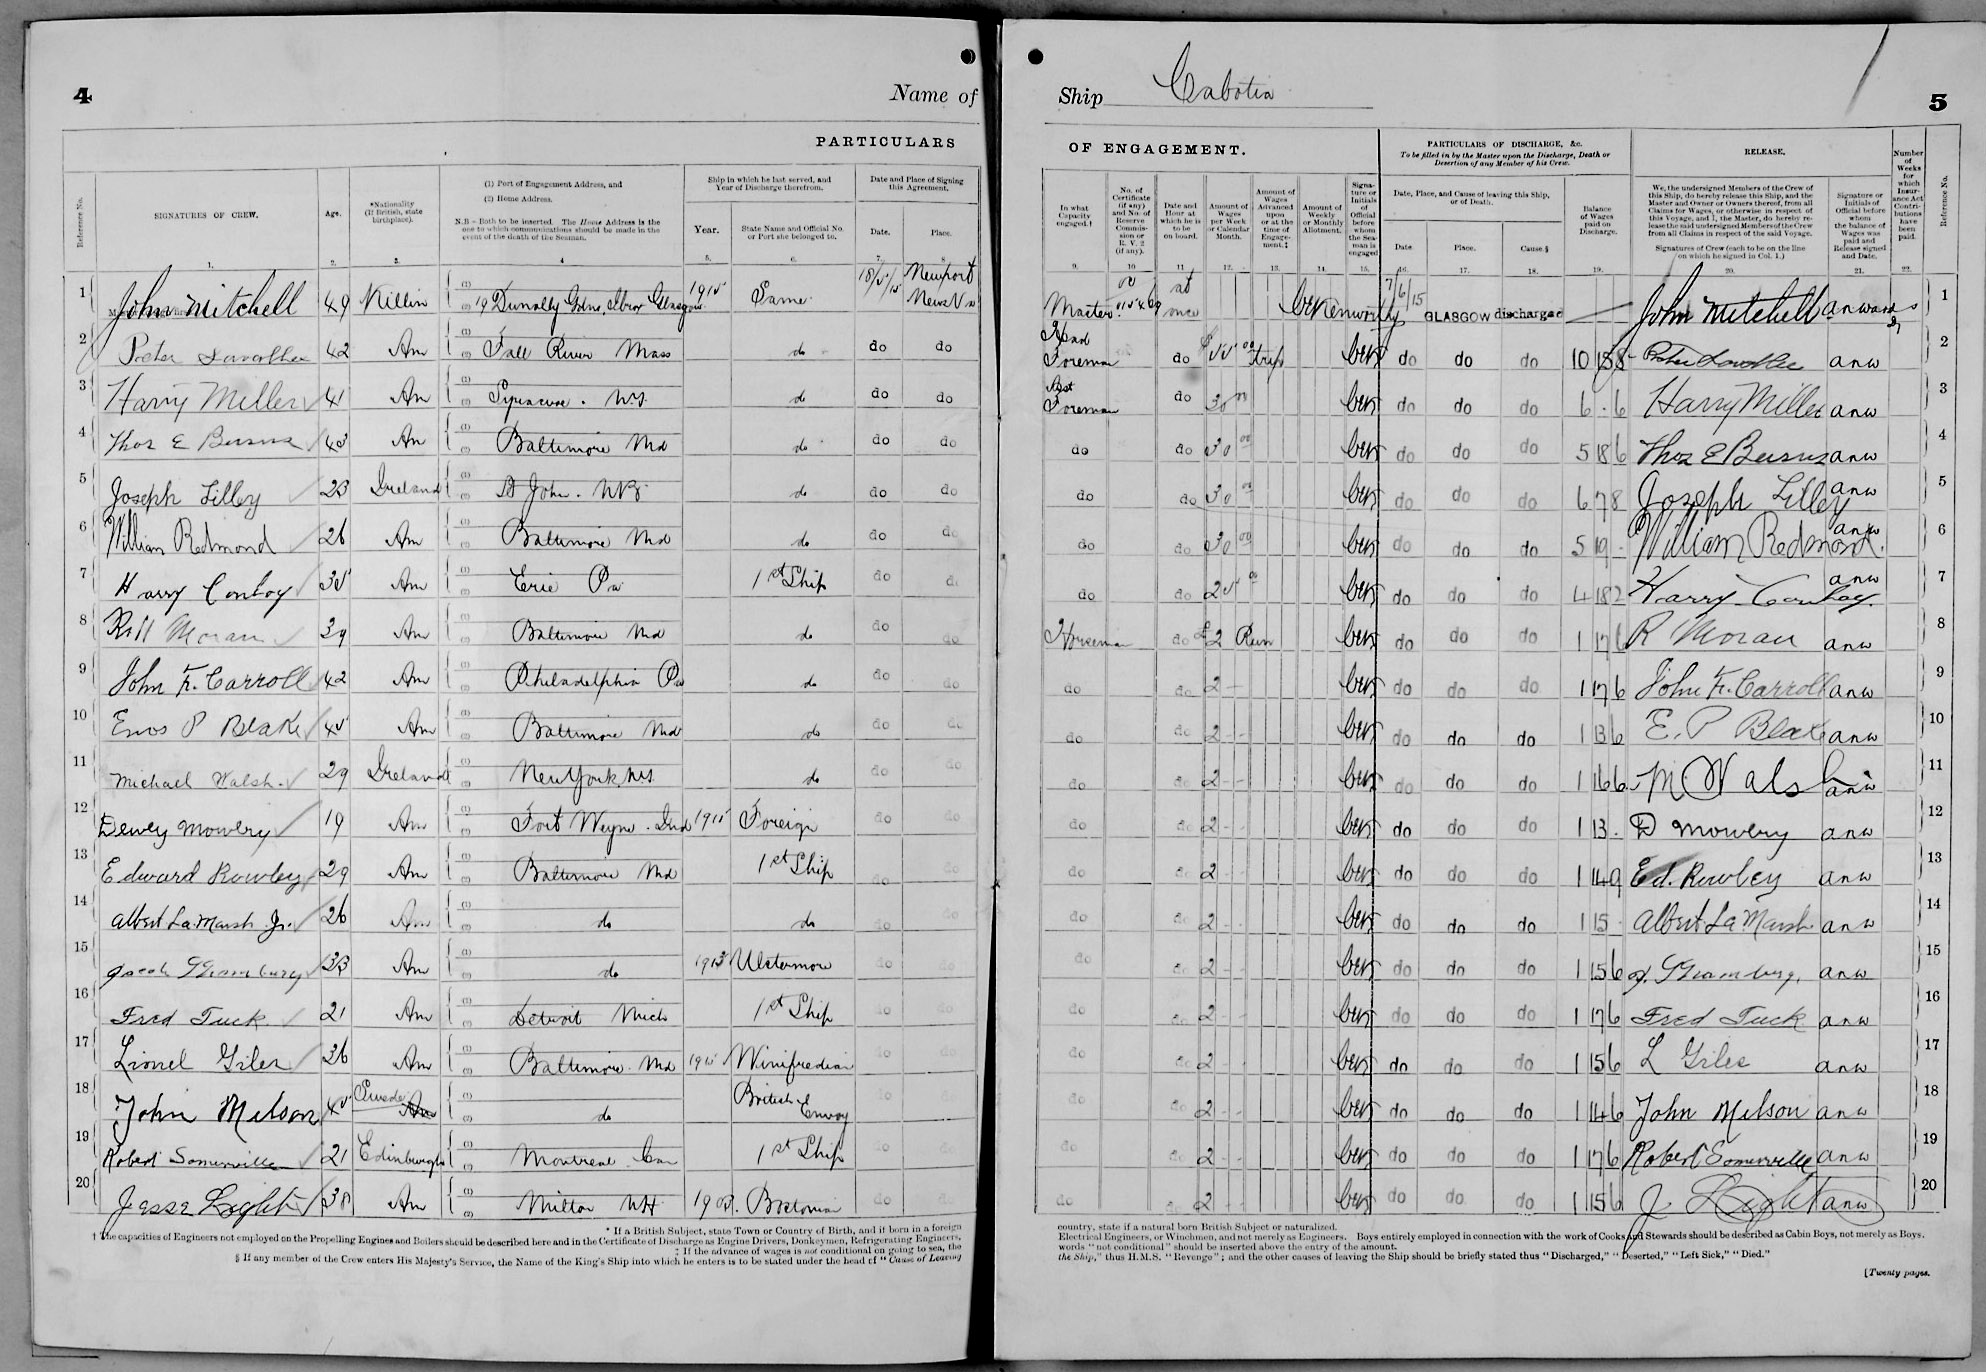 4
Name of
PARTICULARS
Reference No.
SIGNATURES OF CREW.
Age.
*Nationality (If British, state birthplace).
(1) Port of Engagement Address, and
(2) Home Address.
N.B - Both to be inserted. The Home Address is the one to which communications should be made in the event of the death of the Seaman.
Ship in which he last served, and Year of Discharge therefrom.
Year.
State Name and Official No. or Port she belonged to.
Date and Place of Signing this Agreement.
Date.
Place.
1. 2. 3. 4 5. 6. 7. 8
1 John Mitchell 49 Killin 19 Dunolly Gdns, Ibrox Glasgow 1915 Same 18/5/15 Newport News Va
2 42 Am Fall River Mass do do do
3 Harry Miller 41 Am Syracuse. N.Y. do do do
4 Thos E 43 Am Baltimore Md do do do
5 Joseph Lilley 23 Ireland St John. N.B. do do do
6 William Redmond 26 Am Baltimore Md do do do
7 Harry Conboy 35 Am Erie Pa 1st Ship do do
8 Moran 39 Am Baltimore Md do do do
9 John F. Carroll 42 Am Philadelphia Pa do do do
10 Enos P Blake 45 Am Baltimore Md do do do
11 Michael Walsh. 29 Ireland New York N.Y. do do do
12 Dewey Mowery 19 Am Fort Wayne. Ind 1915 Foreign do do
13 Edward Rowley 29 Am Baltimore Md 1st Ship do do
14 Albert La Marsh Jr. 26 Am do do do do
15 33 Am do 1913 Ulstermore do do
16 Fred Tuck. 21 Am Detroit Mich 1st Ship do do
17 Lionel Giles 36 Am Baltimore. Md 1915 Winifredian do do
18 John Milson 45 Am do British Envoy do do
19 Robert Somerville 21 Edinburgh Montreal Can 1st Ship do do
20 Jesse Light 38 Am Milton NH Bostonian do do
* If a British Subject, state Town or Country of Birth, and if born in a foreign
† The capacities of Engineers not employed on the Propelling Engines and Boilers should be described here and in the Certificate of Discharge as Engine Drivers, Donkeymen, Refrigerating Engineers,
‡ If the advance of wages is not conditional on going to sea, the
§ If any member of the Crew enters His Majesty's Service, the Name of the King's Ship into which he enters is to be stated under the head of "Cause of Leaving
Ship Cabotia
5
OF ENGAGEMENT.
PARTICULARS OF DISCHARGE, &c.
To be filled in by the Master upon the Discharge, Death or Desertion of any Member of his Crew.
RELEASE.
Number of Weeks for which Insurance Act Contributions have been paid.
Reference No.
In what Capacity engaged.†
No. of Certificate (if any) and No. of Reserve Commission or R. V. 2 (if any).
Date and Hour at which he is to be on board.
Amount of Wages per Week or Calendar Month.
Amount of Wages Advanced upon or at the time of Engagement.‡
Amount of Weekly or Monthly Allotment.
Signature or Initials of Official before whom the Seaman is engaged
Date, Place, and Cause of leaving this Ship, or of Death.
Date.
Place.
Cause.§
Balance of Wages paid on Discharge.
We, the undersigned Members of the Crew of this Ship, do hereby release this Ship, and the Master and Owner or Owners thereof, from all Claims for Wages, or otherwise in respect of this Voyage, and I, the Master, do hereby release the said undersigned Members of the Crew from all Claims in respect of the said Voyage.
Signatures of Crew (each to be on the line on which he signed in Col. 1.)
Signature or Initials of Official before whom the balance of Wages was paid and Release signed and Date.
9. 10 11 12. 13. 14. 15. 16. 17. 18. 19. 20. 21. 22.
Master at once 7/6/15 GLASGOW discharged John Mitchell 1
Head Foreman do 55 00 trip do do do 10 15 8 anw 2
Asst Foreman do 30 00 do do do 6 - 6 Harry Miller anw 3
do do 30 00 do do do 5 18 6 Thos E anw 4
do do 30 00 do do do 6 7 8 Joseph Lilley anw 5
do do 30 00 do do do 5 19 - William Redmond. anw 6
do do 25 00 do do do 4 18 2 Harry Conboy. anw 7
Horseman do £2 Run do do do 1 17 6 R Moran anw 8
do do 2 - do do do 1 17 6 John F. Carroll anw 9
do do 2 - - do do do 1 13 6 E. P Blake anw 10
do do 2 - - do do do 1 16 6 M Walsh anw 11
do do 2 - - do do do 1 13 - D Mowery anw 12
do do 2 - - do do do 1 14 9 Ed. Rowley anw 13
do do 2 - - do do do 1 15 - Albert La Marsh anw 14
do do 2 - - do do do 1 15 6 anw 15
do do 2 - - do do do 1 17 6 Fred Tuck anw 16
do do 2 - - do do do 1 15 6 L Giles anw 17
do do 2 - - do do do 1 14 6 John Milson anw 18
do do 2 - - do do do 1 17 6 Robert Somerville anw 19
do do 2 - - do do do 1 15 6 J Light anw 20
country, state if a natural born British Subject or naturalized.
Electrical Engineers, or Winchmen, and not merely as Engineers. Boys entirely employed in connection with the work of Cooks and Stewards should be described as Cabin Boys, not merely as Boys.
words "not conditional" should be inserted above the entry of the amount.
the Ship," thus H.M.S. "Revenge"; and the other causes of leaving the Ship should be briefly stated thus "Discharged," "Deserted," "Left Sick," "Died."
[Twenty pages.